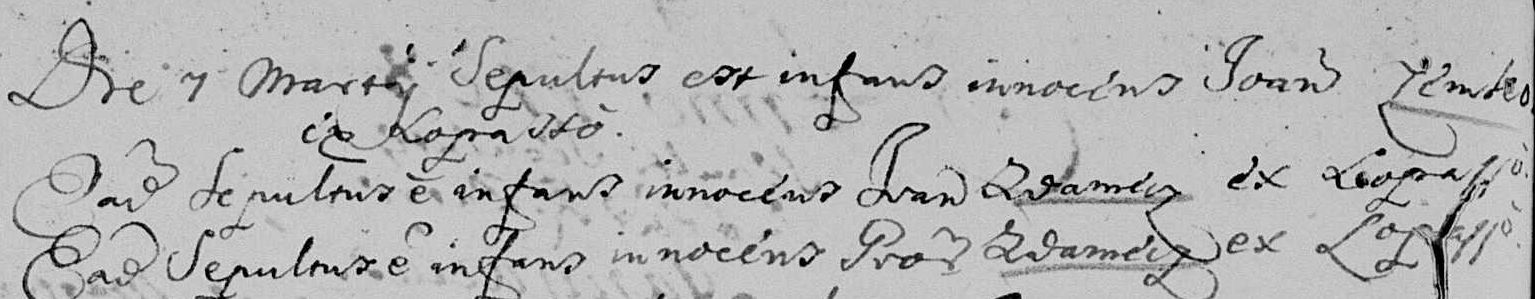 Die 7 Martij Sepultus est infans innocens Joan̄
ex Kopassó.
Ead̄ Sepultus ē infans innocens Ivan Zdamecz ex Kopassó.
Ead̄ Sepultus ē infans innocens Zdamecz ex Kopassó.